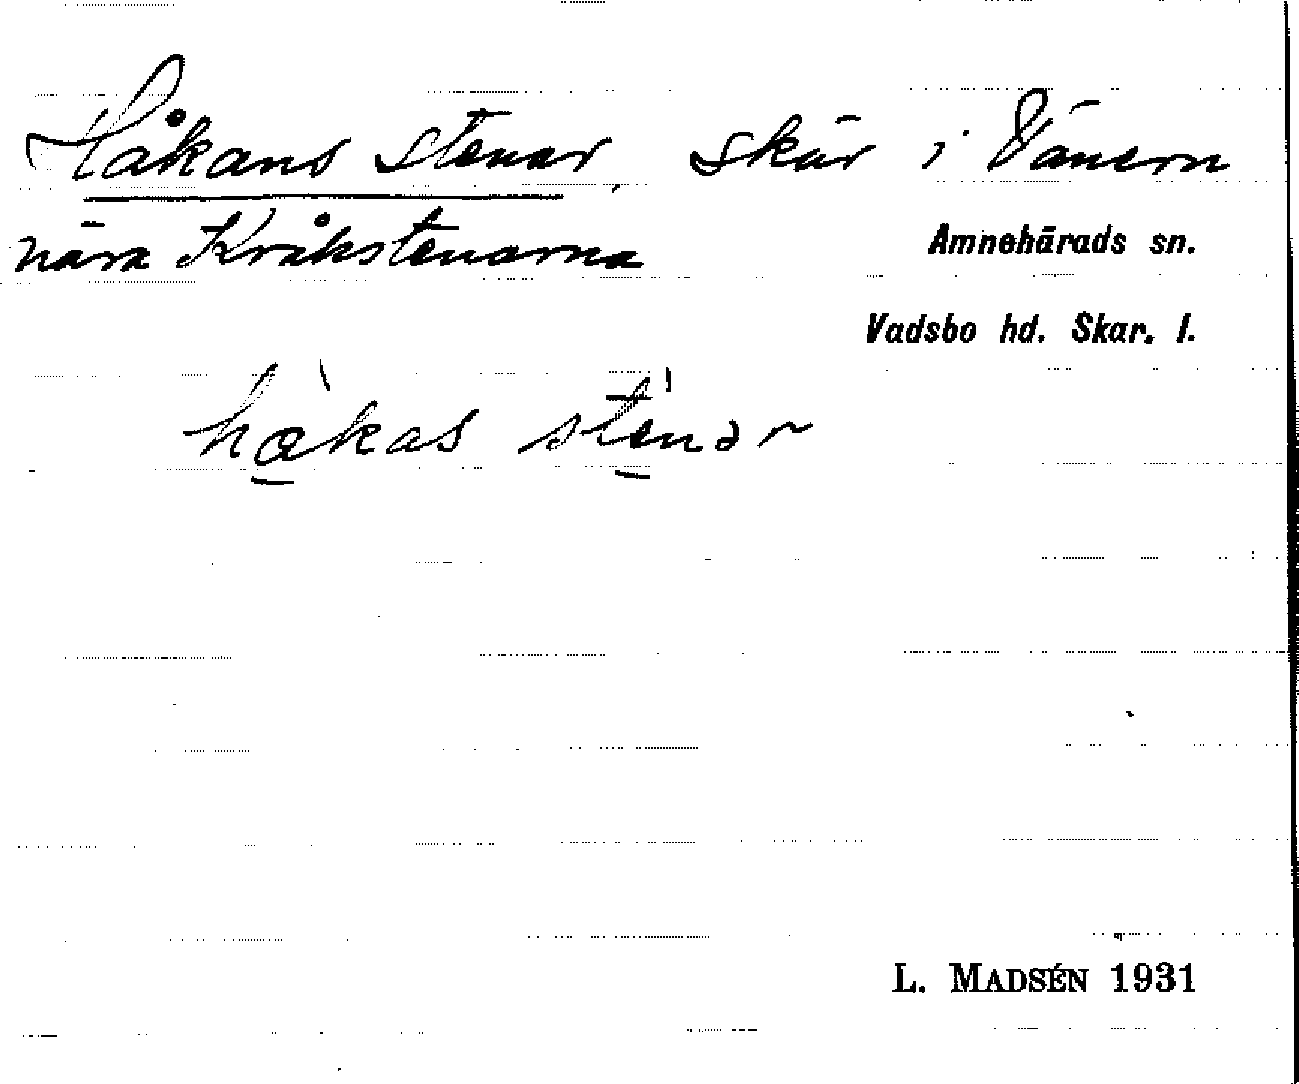 Håkans stenar, skär i Vänern
nära Kråkstenarna
Amnehärads sn.
Vadsbo hd. Skar. l.
hækas stenər
L. MADSÉN 1931